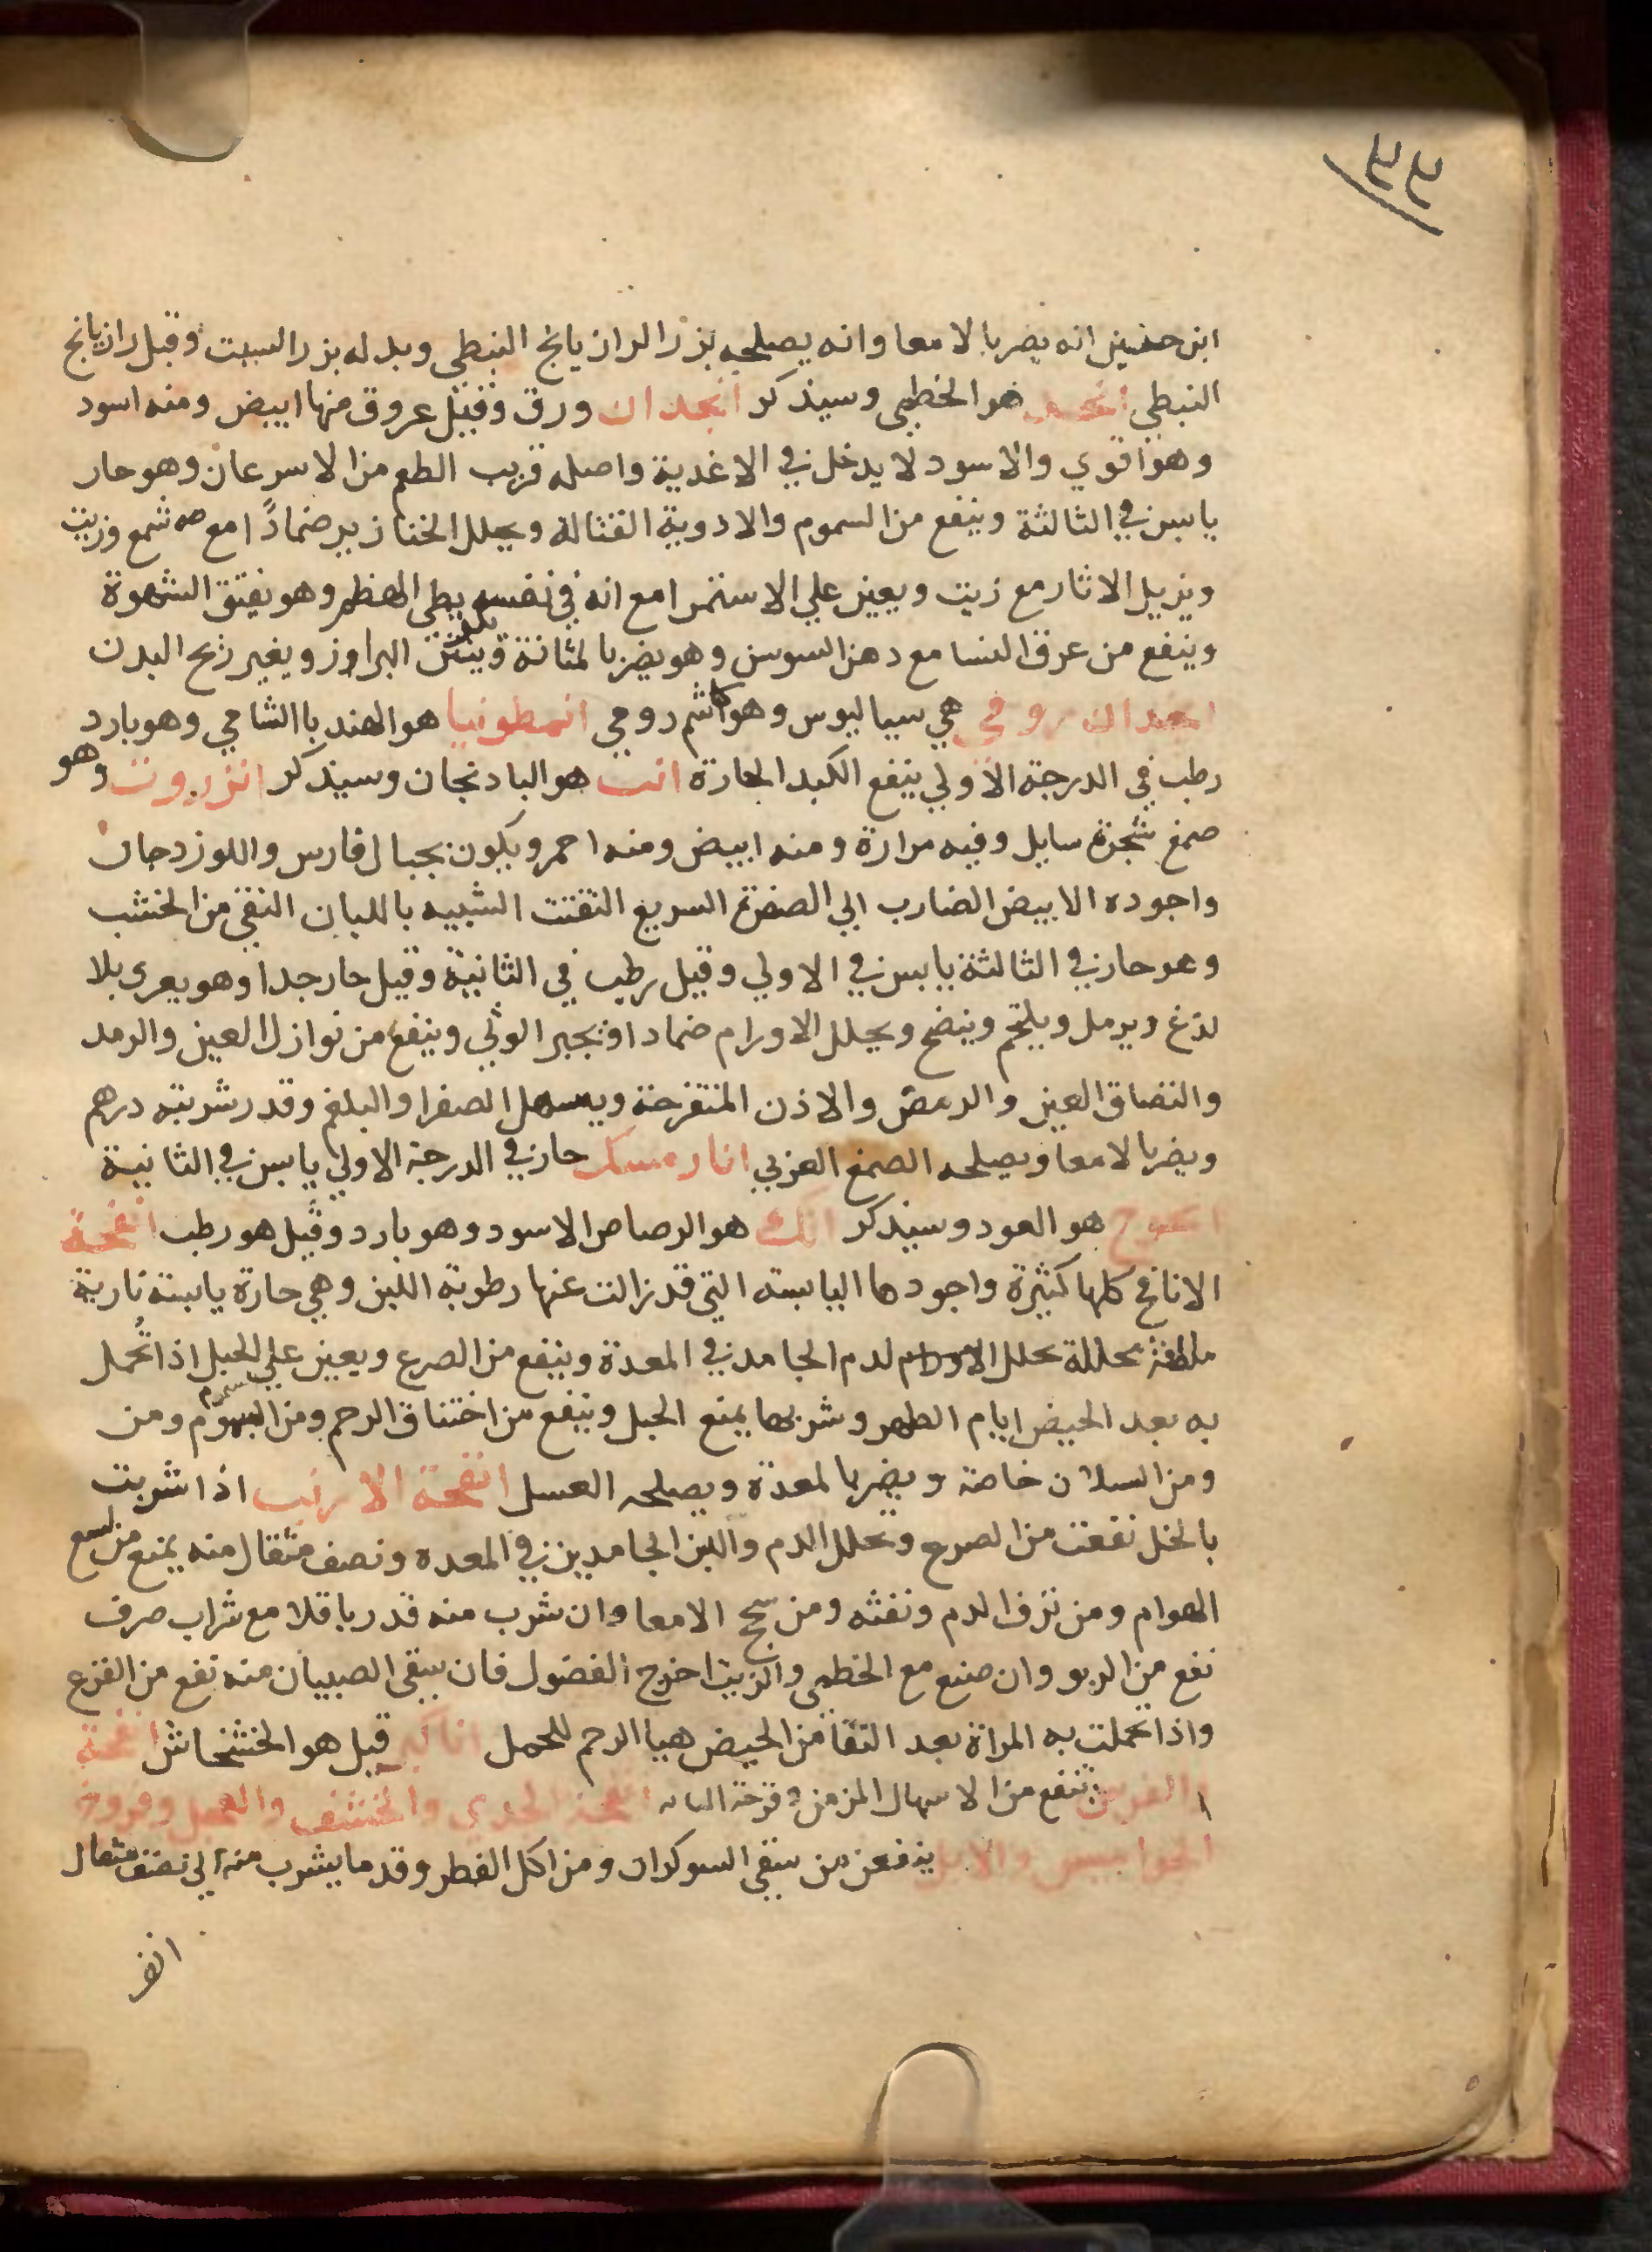 ابن حنين انه يضر بالامعا وانه يصلحه بزر الرازيانج النبطي وبدله بزر السبت وقيل رازيانج
النبطي هو الخطمي وسيذكر انجدان ورق وقيل عروق منها ابيض ومنه اسود
وهو اقوي والاسود لا يدخل في الاغدية واصله قريب الطعم من الاسرعان وهو حار
يابس في الثالثة وينفع من السموم والادوية القتالة ويحلل الخنازير ضمادًا مع شمع وزيت
ويزيل الاثار مع زيت ويعين علي الاستمرا مع انه في نفسه بطي الهظم وهو يفتق الشهوة
وينفع من عرق النسا مع دهن السوسن وهو يضر بالمثانة وينتن البراز ويغير ريح البدن
انجدان رومي هي سياليوس وهو كاشم رومي انطونيا هو الهندبا الشامي وهو بارد
رطب في الدرجة الاولي ينفع الكبد الحارة انب هو البادنجان وسيذكر انزروت وهو
صمغ شجرة سايل وفيه مرارة ومنه ابيض ومنه احمر ويكون بجبال فارس واللوزدجان
واجوده الابيض الضارب الي الصفرة السريع التفتت الشبيه باللبان النقي من الخشب
وهو حار في الثالثة يابس في الاولي وقيل رطب في الثانية وقيل حار جدا وهو يعري بلا
لدغ ويرمل ويلحم وينضج ويحلل الاورام ضمادا ويجبر الوثي وينفع من نوازل العين والرمد
والتصاق العين والرمص والاذن المتقرحة ويسهل الصفرا والبلغم وقدر شربته درهم
ويضر بالامعا ويصلحه الصمغ العربي انار مسك حار في الدرجة الاولي يابس في الثانية
هو العود وسيذكر انك هو الرصاص الاسود وهو بارد وقيل هو رطب انفحة
الانافح كلها كثيرة واجودها اليابسه التي قد زالت عنها رطوبة اللبن وهي حارة يابسة نارية
ملطفة محللة تحلل الاورام لدم الجامد في المعدة وينفع من الصرع ويعين علي الحبل اذا تُحمل
به بعد الحيض ايام الطهر وشربها يمنع الحبل وينفع من اختناق الرحم ومن السموم ومن
ومن السلان خاصة ويضر بالمعدة ويصلحه العسل انفحة الارنب اذا شربت
بالخل نفعت من الصرع وتحلل الدم والبن الجامدين في المعده ونصف مثقال منه يمنع من لسع
الهوام ومن نزف الدم ونفثه ومن سحج الامعا وان شرب منه قدر باقلا مع شراب صرف
نفع من الربو وان صنع مع الخطمي والزيت اخرج الفضول فان سقي الصبيان منه نفع من الفزع
واذا تحملت به المراة بعد النقا من الحيض هيا الرحم للحمل قيل هو الخشخاش انفحة
الفرس تنفع من الاسهال المزمن وقرحة انفحة الجدي والخشف والعجل
الجواميس والابل ينفعن من سقي السوكران ومن اكل الفطر وقد ما يشرب منه الي نصف مثقال
انفر